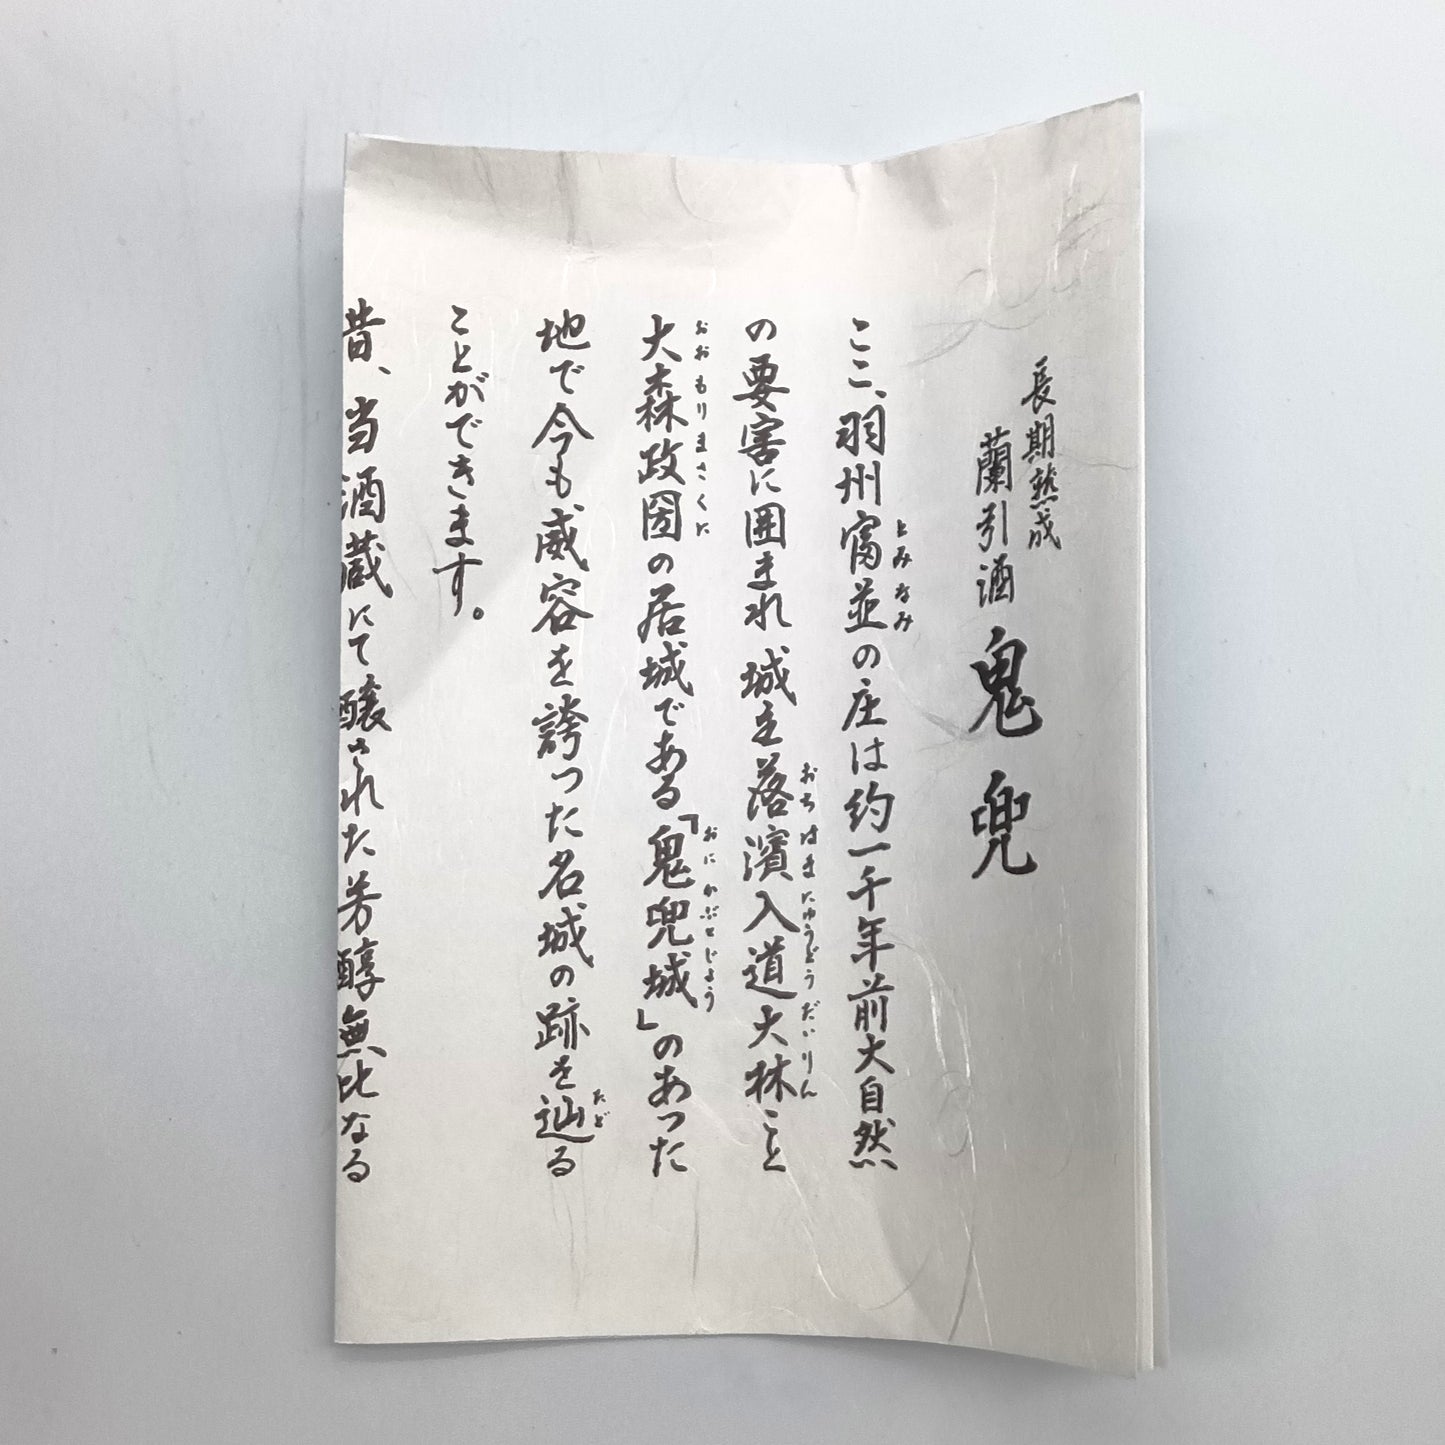 長期熟成
蘭引酒 鬼兜
ここ、羽州富並の庄は約一千年前大自然
とみなみ
の要害に囲まれ城主落濱入道大林こと
おちはまにゅうどうだいりん
大森政圀の居城である「鬼兜城」のあった
おおもりまさくに
おにかぶとじょう
地で今も威容を誇った名城の跡を辿る
たど
ことができます。
昔、当酒蔵にて醸された芳醇無比なる